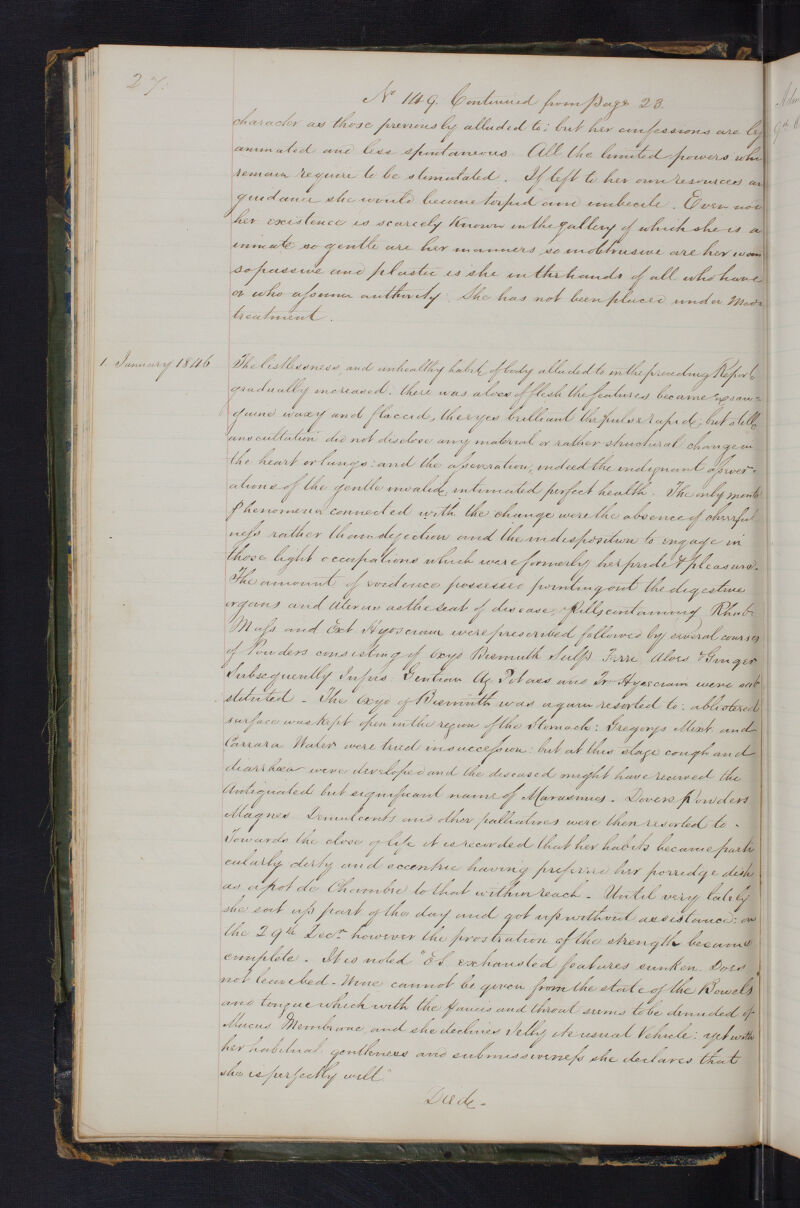 27.
No 149. Continued from Page 23.
character as those previously alluded to; but her confessions are less
animated and less spontaneous. All the limited powers whi
remain require to be stimulated. If left to her own resources an
guidance she would become torpid and imbecile. Even now
her existence is scarcely known in the gallery of which she is a
inmate so gentle are her manners so unobtrusive are her wan
so passive and plastic is she in the hands of all who have
or who assume authority. She has not been placed under Med
treatment.
1 January 1846
The listlessness, and unhealthy habit of body alluded to in the preceding Report
gradually increased: there was a loss of flesh the features became exsan=
guine waxy and flaccid, the eyes brilliant the pulse rapid; but still
auscultation did not disclose any material or rather structural change in
the heart or lungs: and the asseveration, indeed the indignant assever=
ations of the gentle invalid, intimated perfect health. The only mental
Phenomena connected with the change were the absence of cheerful
ness rather than dejection and the indisposition to engage in
those light occupations which were formerly her pride & pleasure.
The amount of evidence possessed pointing out the digestive
organs and Uterus as the seat of disease, Pills containing Rhub
Mass and Ext Hyosciam were prescribed followed by several courses
of Powders consisting of Oxyd Bismuth Sulp. Ferri, Aloes & Ginger
Subsequently Infus: Gentian Aq Potass and Tr Hyosciam were sub
stituted - The Oxyd of Bismuth was again resorted to: a blistered
surface was kept open in the region of the Stomach: Gregorys Mixt. and
Carrara Water were tried in succession: but at this stage cough and
diarrhœa were developed and the disease might have received the
Antiquated but significant name of Marasmus. Dovers Powders
Magnes Demulcents and other palliatives were then resorted to -
Towards the close of life it is recorded that her habits became parti
cularly dirty and eccentric having preferred her porridge dish
as a pot de Chambre to that within reach - Until very lately
she sat up part of the day and got up without assistance: on
the 29th Decr however the prostration of the strength became
complete. It is noted "E S. exhausted features sunken. Does
not leave bed - Wine cannot be given from the state of the Bowels
and tongue which with the fauces and throat seems to be denuded of
Mucus Membrane, and she declines Jelly its usual Vehicle: yet with
her habitual gentleness and submissiveness she declares that
she is perfectly well."
Died -